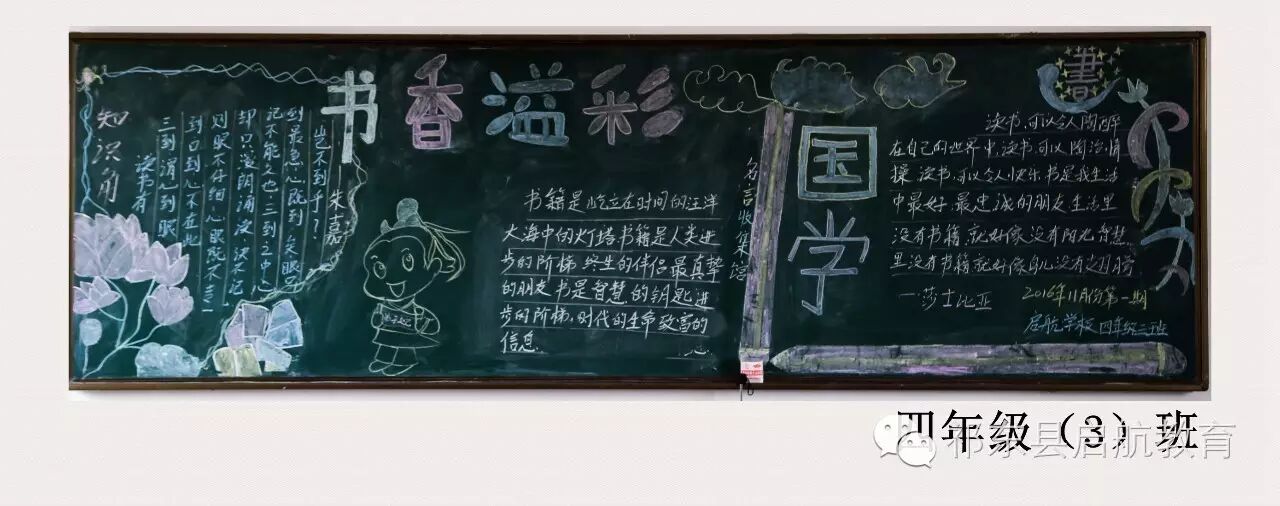 书香溢彩
知识角
读书有
三到谓心到眼
到口到心不在此
则眼不仔细心眼既不专一
却只漫朗诵读决不记
记不能久也·三到之中心
到最急心既到矣眼口
岂不到乎?
朱嘉
书籍是屹立在时间的汪洋
大海中的灯塔书籍是人类进
步的阶梯终生的伴侣最真挚
的朋友书是智慧的钥匙进
步的阶梯,时代的生命致富的
信息
名言收集馆
国学
書
读书,可以令人陶醉
在自己的世界中,读书,可以陶冶情
操,读书,可以令人快乐.书是我生活
中最好,最忠诚的朋友生活里
没有书籍,就好像没有阳光智慧
里没有书籍就好像鸟儿没有翅膀
—莎士比亚
2016年11月份第一期
启航学校四年级三班
四年级（3）班
祁东县启航教育